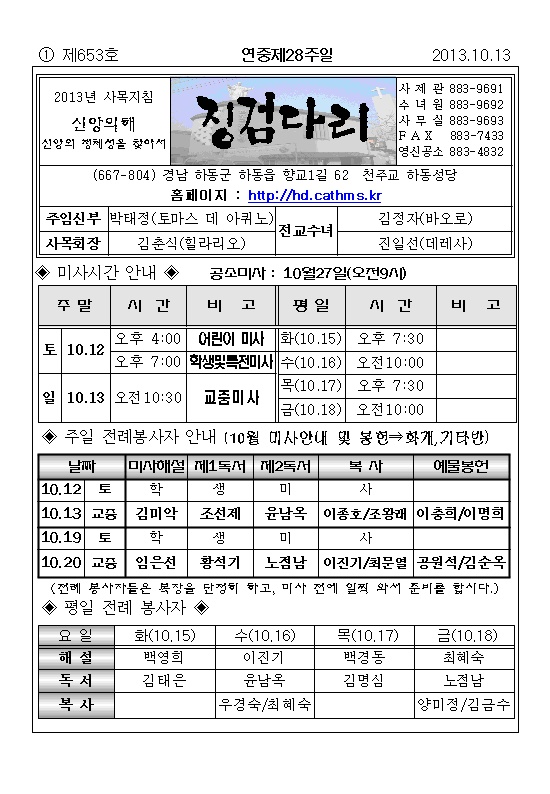 ① 제653호 연중제28주일 2013.10.13
2013년 사목지침
신앙의해
신앙의 정체성을 찾아서
징검다리
사 제 관 883-9691
수 녀 원 883-9692
사 무 실 883-9693
F A X 883-7433
영신공소 883-4832
(667-804) 경남 하동군 하동읍 향교1길 62 천주교 하동성당
홈페이지 : http://hd.cathms.kr
주임신부 박태정(토마스 데 아퀴노) 전교수녀 김정자(바오로)
사목회장 김춘식(힐라리오) 진일선(데레사)
◈ 미사시간 안내 ◈ 공소미사 : 10월27일(오전9시)
주 말 시 간 비 고 평 일 시 간 비 고
토 10.12 오후 4:00 어린이 미사 화(10.15) 오후 7:30
오후 7:00 학생및특전미사 수(10.16) 오전10:00
일 10.13 오전10:30 교중미사 목(10.17) 오후 7:30
금(10.18) 오전10:00
◈ 주일 전례봉사자 안내 (10월 미사안내 및 봉헌⇒화개,기타반)
날짜 미사해설 제1독서 제2독서 복 사 예물봉헌
10.12 토 학 생 미 사
10.13 교중 김미악 조선제 윤남옥 이종호/조왕래 이충희/이명희
10.19 토 학 생 미 사
10.20 교중 임은선 황석기 노점남 이진기/최문열 공원석/김순옥
(전례 봉사자들은 복장을 단정히 하고, 미사 전에 일찍 와서 준비를 합시다.)
◈ 평일 전례 봉사자 ◈
요 일 화(10.15) 수(10.16) 목(10.17) 금(10.18)
해 설 백영희 이진기 백경동 최혜숙
독 서 김태은 윤남옥 김명심 노점남
복 사 우경숙/최혜숙 양미정/김금수